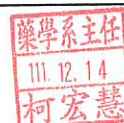 藥學系主任
111. 12. 14
柯宏慧